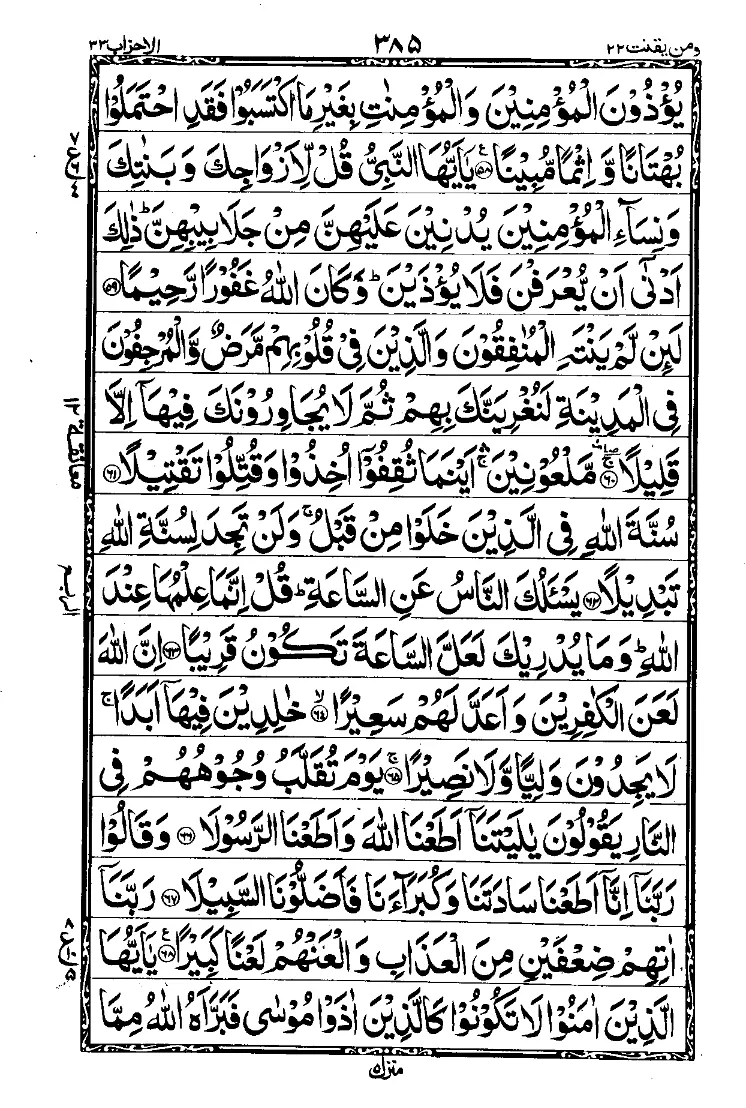 ومن يقنت ٢٢ ٣٨٥ الاحزاب ٣٣
يُؤْذُوْنَ الْمُؤْمِنِيْنَ وَالْمُؤْمِنٰتِ بِغَيْرِ مَا اكْتَسَبُوْا فَقَدِ احْتَمَلُوْا
بُهْتَانًا وَّ اِثْمًا مُّبِيْنًا ﴿۵۸﴾ ع يٰۤاَيُّهَا النَّبِىُّ قُلْ لِّاَزْوَاجِكَ وَ بَنٰتِكَ
وَنِسَآءِ الْمُؤْمِنِيْنَ يُدْنِيْنَ عَلَيْهِنَّ مِنْ جَلَابِيْبِهِنَّ ؕ ذٰلِكَ
اَدْنٰۤى اَنْ يُّعْرَفْنَ فَلَا يُؤْذَيْنَ ؕ وَكَانَ اللّٰهُ غَفُوْرًا رَّحِيْمًا ﴿۵۹﴾
لَئِنْ لَّمْ يَنْتَهِ الْمُنٰفِقُوْنَ وَالَّذِيْنَ فِىْ قُلُوْبِهِمْ مَّرَضٌ وَّالْمُرْجِفُوْنَ
فِى الْمَدِيْنَةِ لَنُغْرِيَنَّكَ بِهِمْ ثُمَّ لَا يُجَاوِرُوْنَكَ فِيْهَاۤ اِلَّا
قَلِيْلًا ﴿۶۰﴾ مَّلْعُوْنِيْنَ ۛۚ اَيْنَمَا ثُقِفُوْۤا اُخِذُوْا وَقُتِّلُوْا تَقْتِيْلًا ﴿۶۱﴾
سُنَّةَ اللّٰهِ فِى الَّذِيْنَ خَلَوْا مِنْ قَبْلُ ۚ وَلَنْ تَجِدَ لِسُنَّةِ اللّٰهِ
تَبْدِيْلًا ﴿۶۲﴾ يَسْئَلُكَ النَّاسُ عَنِ السَّاعَةِ ؕ قُلْ اِنَّمَا عِلْمُهَا عِنْدَ
اللّٰهِ ؕ وَمَا يُدْرِيْكَ لَعَلَّ السَّاعَةَ تَكُوْنُ قَرِيْبًا ﴿۶۳﴾ اِنَّ اللّٰهَ
لَعَنَ الْكٰفِرِيْنَ وَاَعَدَّ لَهُمْ سَعِيْرًا ﴿۶۴﴾ ۙ خٰلِدِيْنَ فِيْهَاۤ اَبَدًا ۚ
لَا يَجِدُوْنَ وَلِيًّا وَّلَا نَصِيْرًا ﴿۶۵﴾ ۚ يَوْمَ تُقَلَّبُ وُجُوْهُهُمْ فِى
النَّارِ يَقُوْلُوْنَ يٰلَيْتَنَاۤ اَطَعْنَا اللّٰهَ وَاَطَعْنَا الرَّسُوْلَا ﴿۶۶﴾ وَقَالُوْا
رَبَّنَاۤ اِنَّاۤ اَطَعْنَا سَادَتَنَا وَكُبَرَآءَنَا فَاَضَلُّوْنَا السَّبِيْلَا ﴿۶۷﴾ رَبَّنَاۤ
اٰتِهِمْ ضِعْفَيْنِ مِنَ الْعَذَابِ وَالْعَنْهُمْ لَعْنًا كَبِيْرًا ﴿۶۸﴾ ع يٰۤاَيُّهَا
الَّذِيْنَ اٰمَنُوْا لَا تَكُوْنُوْا كَالَّذِيْنَ اٰذَوْا مُوْسٰى فَبَرَّاَهُ اللّٰهُ مِمَّا
معانقة ١٢
منزل ۵